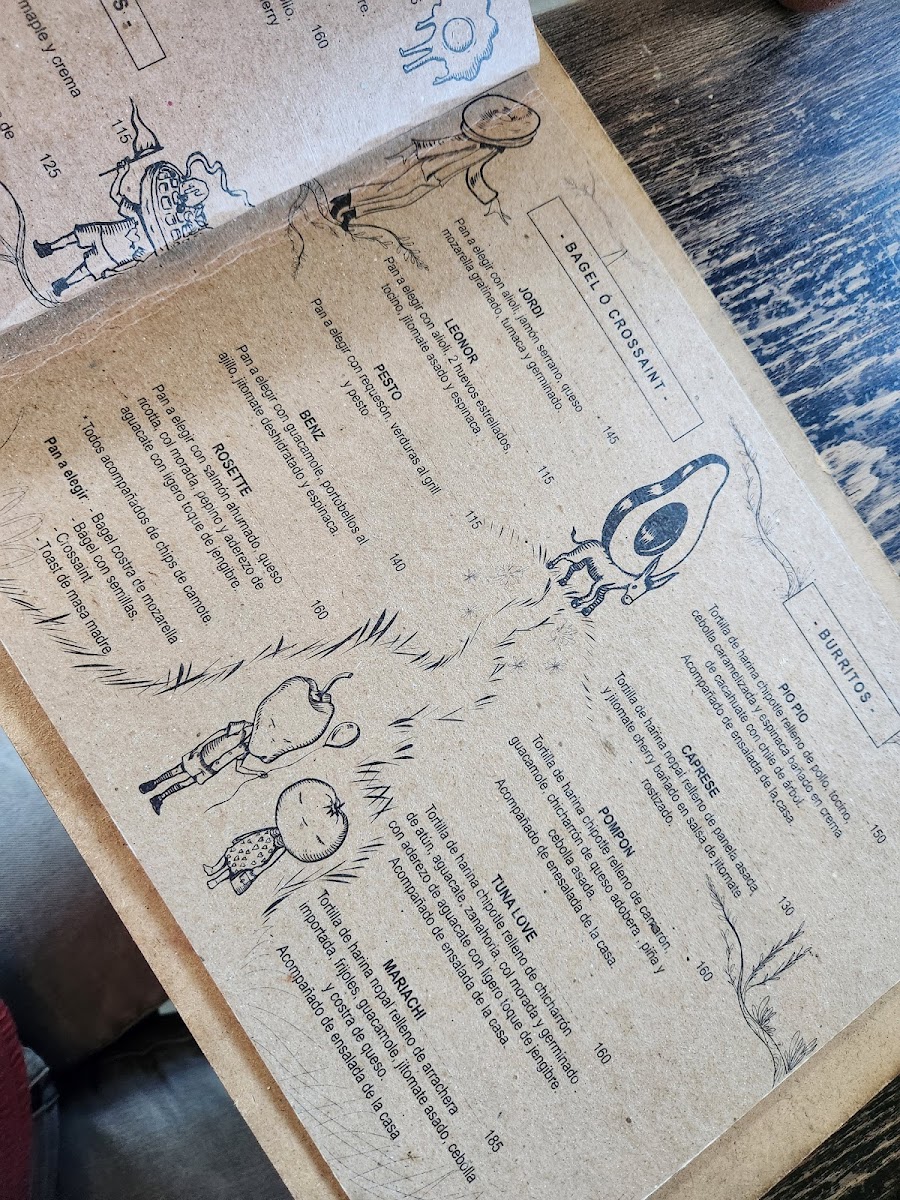 S -
maple y crema
115
de
125
160
- BAGEL Ó CROSSAINT -
JORDI
Pan a elegir con alioli, jamón serrano, queso
mozarella gratinado, tumaca y germinado.
145
LEONOR
Pan a elegir con alioli, 2 huevos estrellados,
tocino, jitomate asado y espinaca.
115
PESTO
Pan a elegir con requesón, verduras al grill
y pesto
115
BENZ
Pan a elegir con guacamole, portobellos al
ajillo, jitomate deshidratado y espinaca.
140
ROSETTE
Pan a elegir con salmón ahumado, queso
ricotta, col morada, pepino y aderezo de
aguacate con ligero toque de jengibre.
160
* Todos acompañados de chips de camote.
Pan a elegir - Bagel costra de mozarella
- Bagel con semillas.
- Crossaint
- Toast de masa madre
- BURRITOS -
PIO PIO
Tortilla de harina chipotle relleno de pollo, tocino,
cebolla caramelizada y espinaca bañado en crema
de cacahuate con chile de árbol.
Acompañado de ensalada de la casa.
150
CAPRESE
Tortilla de harina nopal relleno de panela asada,
y jitomate cherry bañado en salsa de jitomate
rostizado.
130
POMPON
Tortilla de harina chipotle relleno de camarón,
guacamole, chicharrón de queso adobera , piña y
cebolla asada.
Acompañado de enesalada de la casa.
160
TUNA LOVE
Tortilla de harina chipotle relleno de chicharrón
de atún, aguacate, zanahoria, col morada y germinado
con aderezo de aguacate con ligero toque de jengibre.
Acompañado de ensalada de la casa
160
MARIACHI
Tortilla de harina nopal relleno de arrachera
importada, frijoles, guacamole, jitomate asado, cebolla
y costra de queso.
Acompañado de ensalada de la casa
185